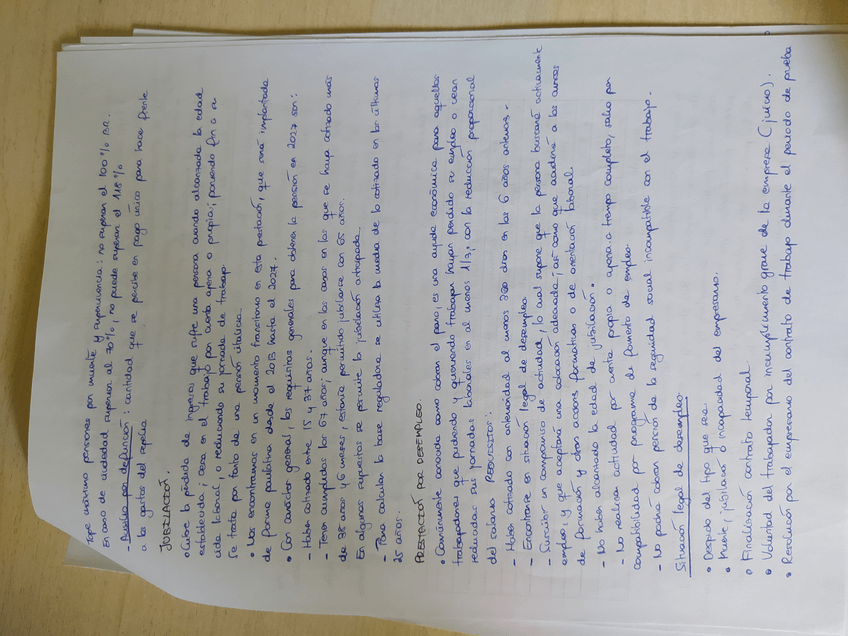 Tope máximo pensiones por muerte y supervivencia: no superan el 100% BR.
En caso de viudedad superior al 70%, no puede superar el 118%
- Auxilio por defunción: cantidad que se percibe en pago único para hacer frente
a los gastos del sepelio
JUBILACIÓN.
• Cubre la pérdida de ingresos que sufre una persona cuando alcanzada la edad
establecida; cesa en el trabajo por cuenta ajena o propia; poniendo fin a su
vida laboral, o reduciendo su jornada de trabajo.
Se trata por tanto de una pensión vitalicia.
• Nos encontramos en un momento transitorio en esta prestación, que será implantada
de forma paulatina desde el 2013 hasta el 2027.
• Con carácter general, los requisitos generales para obtener la pensión en 2027 son:
- Haber cotizado entre 15 y 37 años.
- Tener cumplidos los 67 años; aunque en los casos en los que se haya cotizado más
de 38 años y 6 meses, estaría permitido jubilarse con 65 años.
En algunos supuestos se permite la jubilación anticipada.
- Para calcular la base reguladora se utiliza la media de lo cotizado en los últimos
25 años.
PRESTACIÓN POR DESEMPLEO.
• Comúnmente conocida como cobrar el paro, es una ayuda económica para aquellos
trabajadores que pudiendo y queriendo trabajar hayan perdido su empleo o vean
reducidas sus jornadas laborales en al menos 1/3; con la reducción proporcional
del salario. REQUISITOS:
- Haber cotizado con anterioridad al menos 360 días en los 6 años anteriores.
- Encontrarse en situación legal de desempleo.
- Suscribir un compromiso de actividad, lo cual supone que la persona buscará activamente
empleo; y que aceptará una colocación adecuada; así como que acudirá a los cursos
de formación y otras acciones formativas o de orientación laboral.
- No haber alcanzado la edad de jubilación.
- No realizar actividad por cuenta propia o ajena a tiempo completo, salvo por
compatibilidad por programa de fomento de empleo.
- No podrá cobrar pensión de la seguridad social incompatible con el trabajo.
Situación legal de desempleo
• Despido del tipo que sea.
• Muerte, jubilación o incapacidad del empresario.
• Finalización contrato temporal
• Voluntad del trabajador por incumplimiento grave de la empresa (juicio).
• Resolución por el empresario del contrato de trabajo durante el periodo de prueba